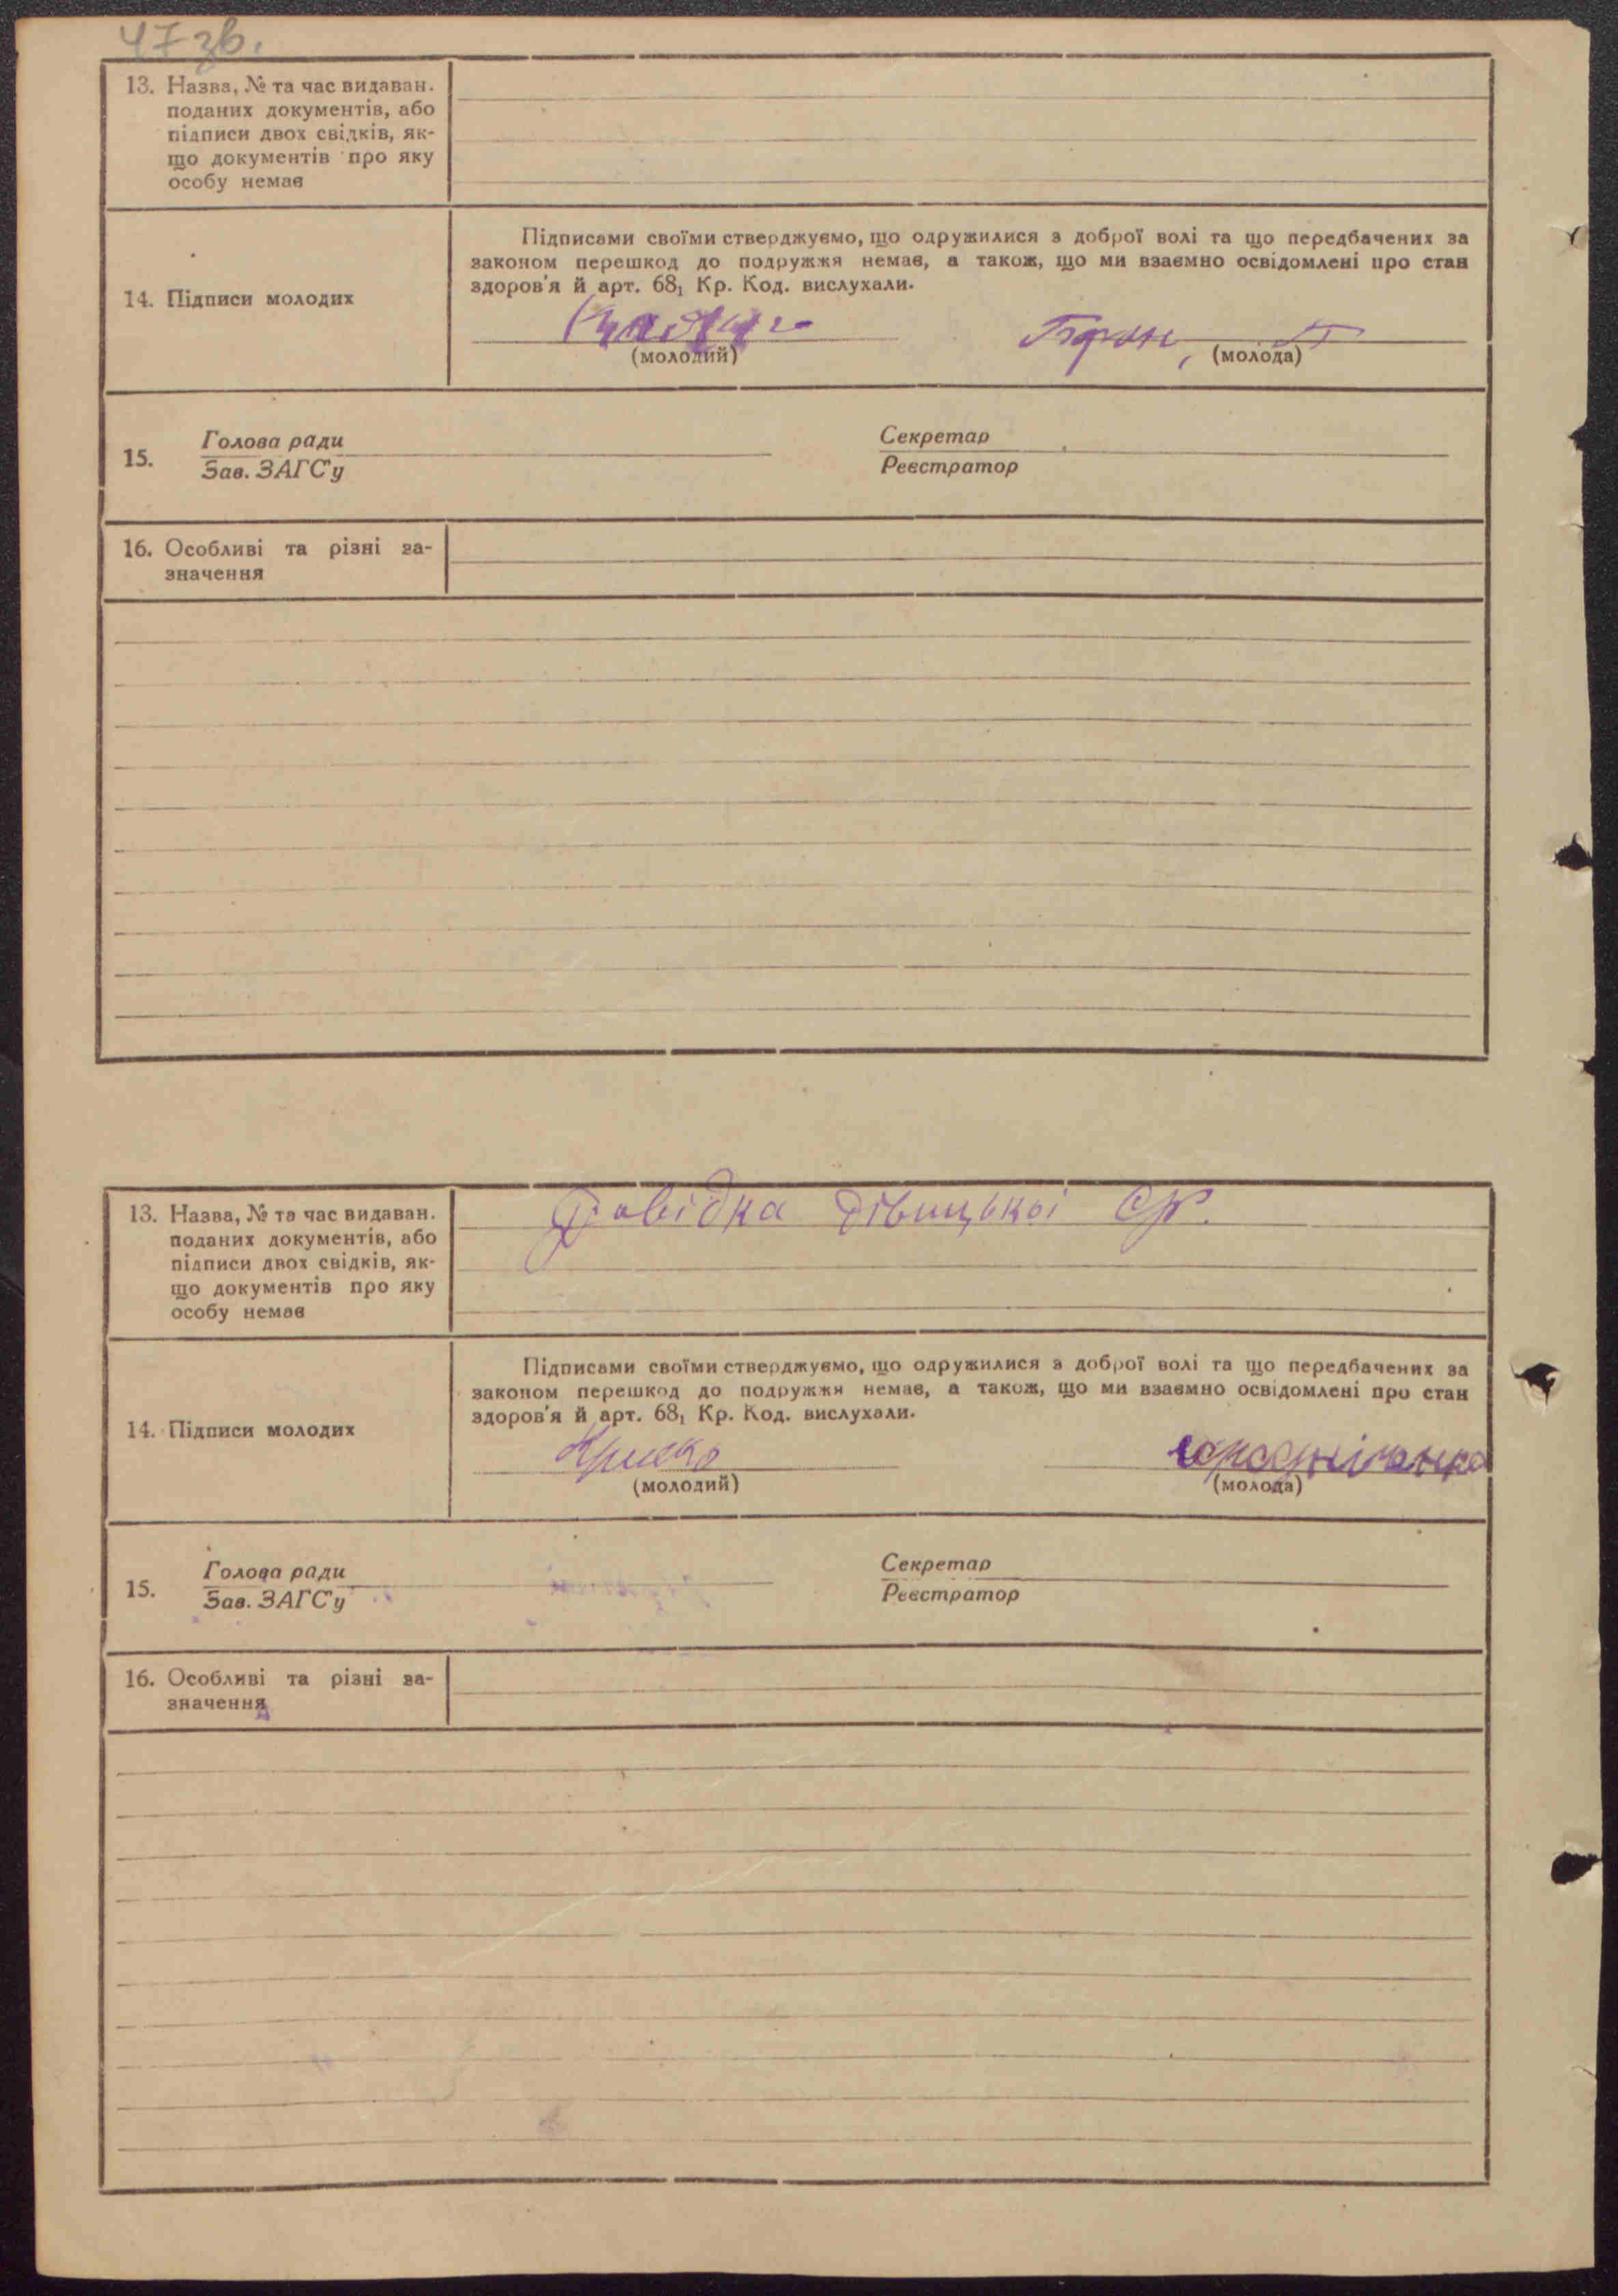 47 зв.
13. Назва, № та час видаван.
поданих документів, або
підписи двох свідків, як-
що документів про яку
особу немає
Підписами своїми стверджуємо, що одружилися з доброї волі та що передбачених за
законом перешкод до подружжя немає, а також, що ми взаємно освідомлені про стан
здоров'я й арт. 68₁ Кр. Код. вислухали.
14. Підписи молодих
(молодий) (молода)
15. Голова ради Секретар
Зав. ЗАГС'у Реєстратор
16. Особливі та різні за-
значення
Довідка Дівицької С/р.
13. Назва, № та час видаван.
поданих документів, або
підписи двох свідків, як-
що документів про яку
особу немає
Підписами своїми стверджуємо, що одружилися з доброї волі та що передбачених за
законом перешкод до подружжя немає, а також, що ми взаємно освідомлені про стан
здоров'я й арт. 68₁ Кр. Код. вислухали.
14. Підписи молодих
(молодий) (молода)
15. Голова ради Секретар
Зав. ЗАГС'у Реєстратор
16. Особливі та різні за-
значення